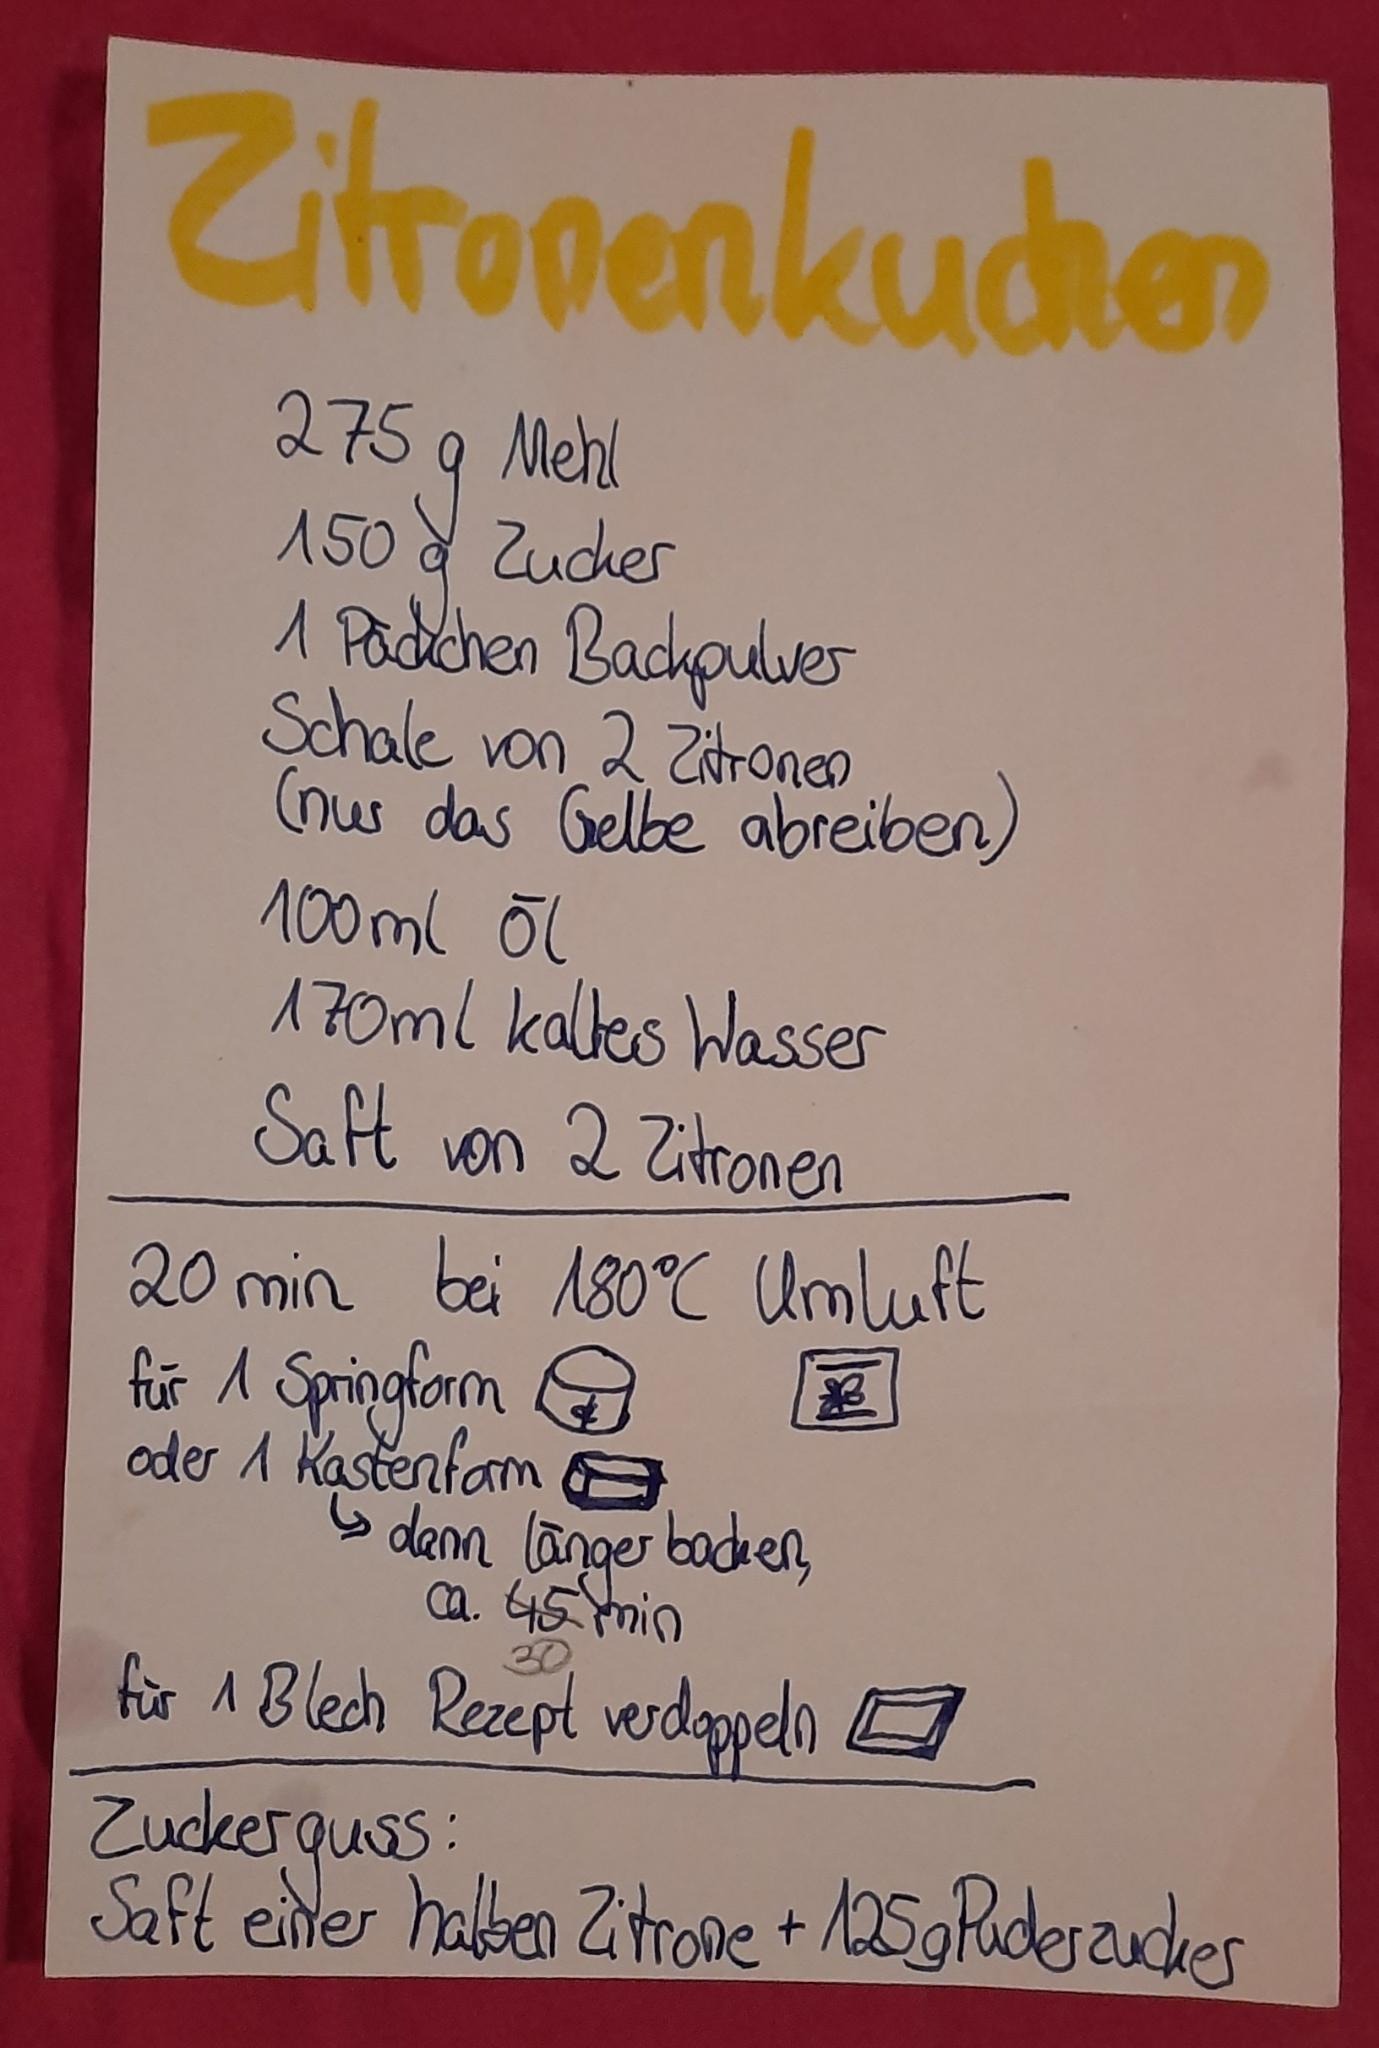 Zitronenkuchen
275 g Mehl
150 g Zucker
1 Päckchen Backpulver
Schale von 2 Zitronen
(nur das Gelbe abreiben)
100ml Öl
170ml kaltes Wasser
Saft von 2 Zitronen
20 min bei 180°C Umluft
für 1 Springform
oder 1 Kastenform
↳ dann länger backen,
ca. 45 min
30
für 1 Blech Rezept verdoppeln
Zuckerguss:
Saft einer halben Zitrone + 125g Puderzucker